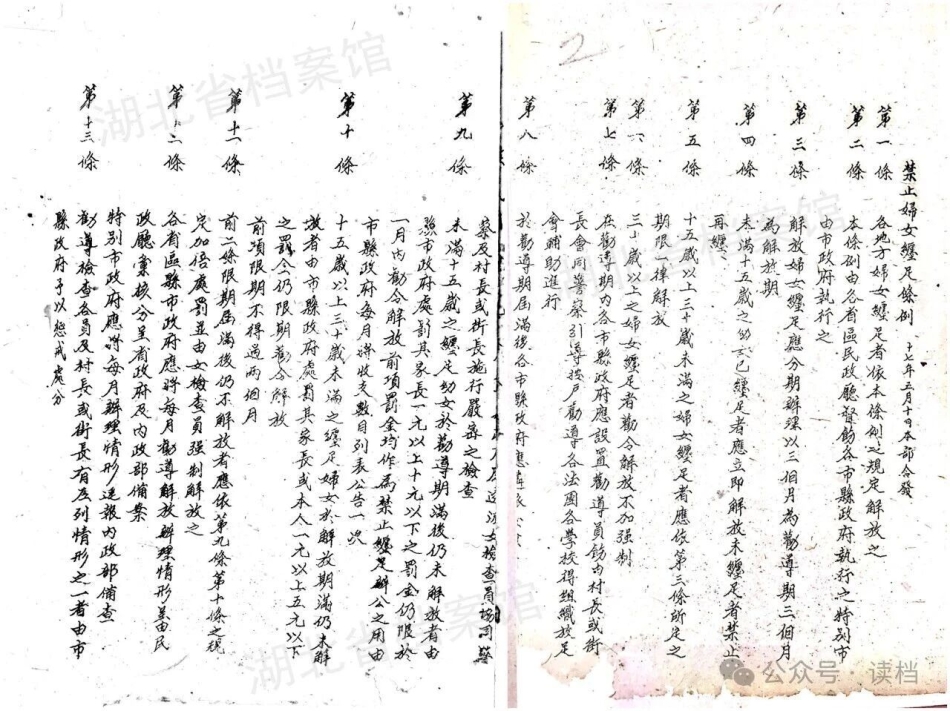 禁止婦女纏足條例 十七年五月十四本部公發
第一條 各地方婦女纏足者依本條例之規定解放之
第二條 本條例由各省區民政廳督飭各市縣政府執行之特別市
由市政府執行之
第三條 解放婦女纏足應分期辦理以三個月為勸導期三個月
為解放期
第四條 未滿十五歲之幼女已纏足者應立即解放未纏足者禁止
再纏
第五條 十五歲以上三十歲未滿之婦女纏足者應依第三條所定之
期限一律解放
第六條 三十歲以上之婦女纏足者勸令解放不加強制
第七條 在勸導期內各市縣政府應設置勸導員飭內村長或街
長會同警察引導按戶勸導各法團各學校得組織放足
會輔助進行
第八條 於勸導期屆滿後各市縣政府應
女檢查員協同警
察及村長或街長施行嚴密之檢查
第九條 未滿十五歲之纏足幼女於勸導期滿後仍未解放者由
縣市政府處罰其家長一元以上十元以下之罰金仍限於
一月內勸令解放前項罰金均作為禁止纏足辦公之用由
市縣政府每月將收支數目列表公告一次
第十條 十五歲以上三十歲未滿之纏足婦女於解放期滿仍未解
放者由市縣政府處罰其家長或本人一元以上五元以下
之罰金仍限期勸令解放
前項限期不得過兩個月
第十一條 前二條限期屆滿後仍不解放者應依第九條第十條之規
定加倍處罰並由女檢查員強制解放之
第十二條 各省區縣市政府應將每月勸導解放辦理情形呈由民
政廳彙核分呈省政府及內政部備案
特別市政府應將每月辦理情形逕報內政部備查
第十三條 勸導檢查各員及村長或街長有左列情形之一者由市
縣政府予以懲戒處分
2
湖北省档案馆
湖北省档案馆
公众号·读档